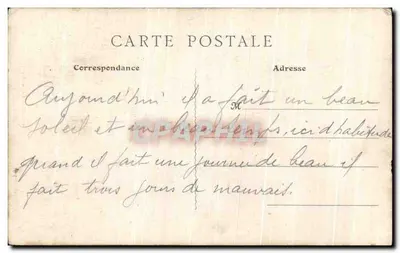 CARTE POSTALE
Correspondance Adresse
Aujourd'hui il a fait un beau
M
soleil et un beau temps, ici d'habitude
quand il fait une journée de beau il
fait trois jours de mauvais.